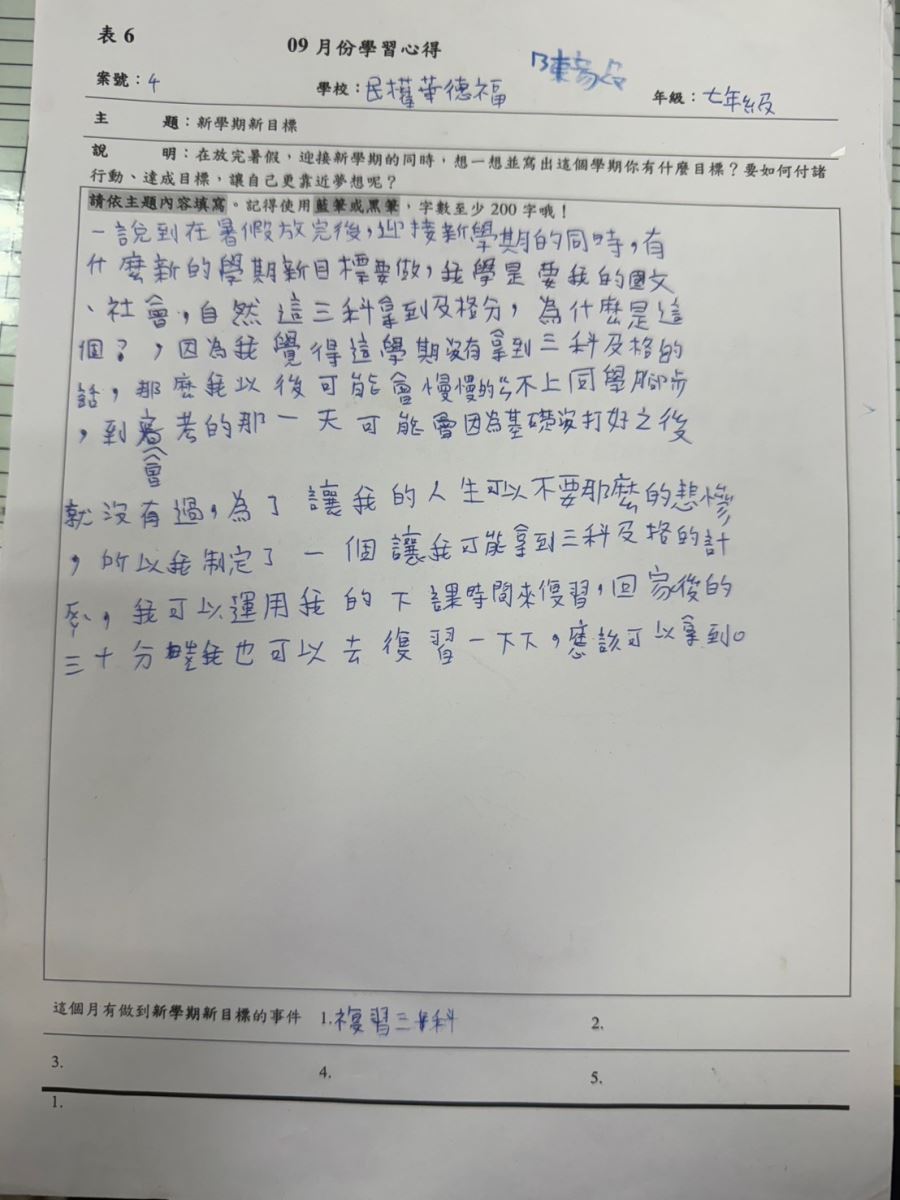 表 6
09 月份學習心得
案號：4 學校：民權華德福 年級：七年級
主 題：新學期新目標
說 明：在放完暑假，迎接新學期的同時，想一想並寫出這個學期你有什麼目標？要如何付諸
行動、達成目標，讓自己更靠近夢想呢？
請依主題內容填寫。記得使用藍筆或黑筆，字數至少 200 字哦！
一說到在暑假放完後，迎接新學期的同時，有
什麼新的學期新目標要做，我學是要我的國文
、社會，自然這三科拿到及格分，為什麼是這
個？，因為我覺得這學期沒有拿到三科及格的
話，那麼我以後可能會慢慢的ㄍ不上同學腳步
，到會考的那一天可能會因為基礎沒打好之後
就沒有過，為了讓我的人生可以不要那麼的悲慘
，所以我制定了一個讓我可能拿到三科及格的計
，我可以運用我的下課時間來復習，回家後的
三十分我也可以去復習一下下，應該可以拿到。
這個月有做到新學期新目標的事件 1.複習三科 2.
3. 4. 5.
1.